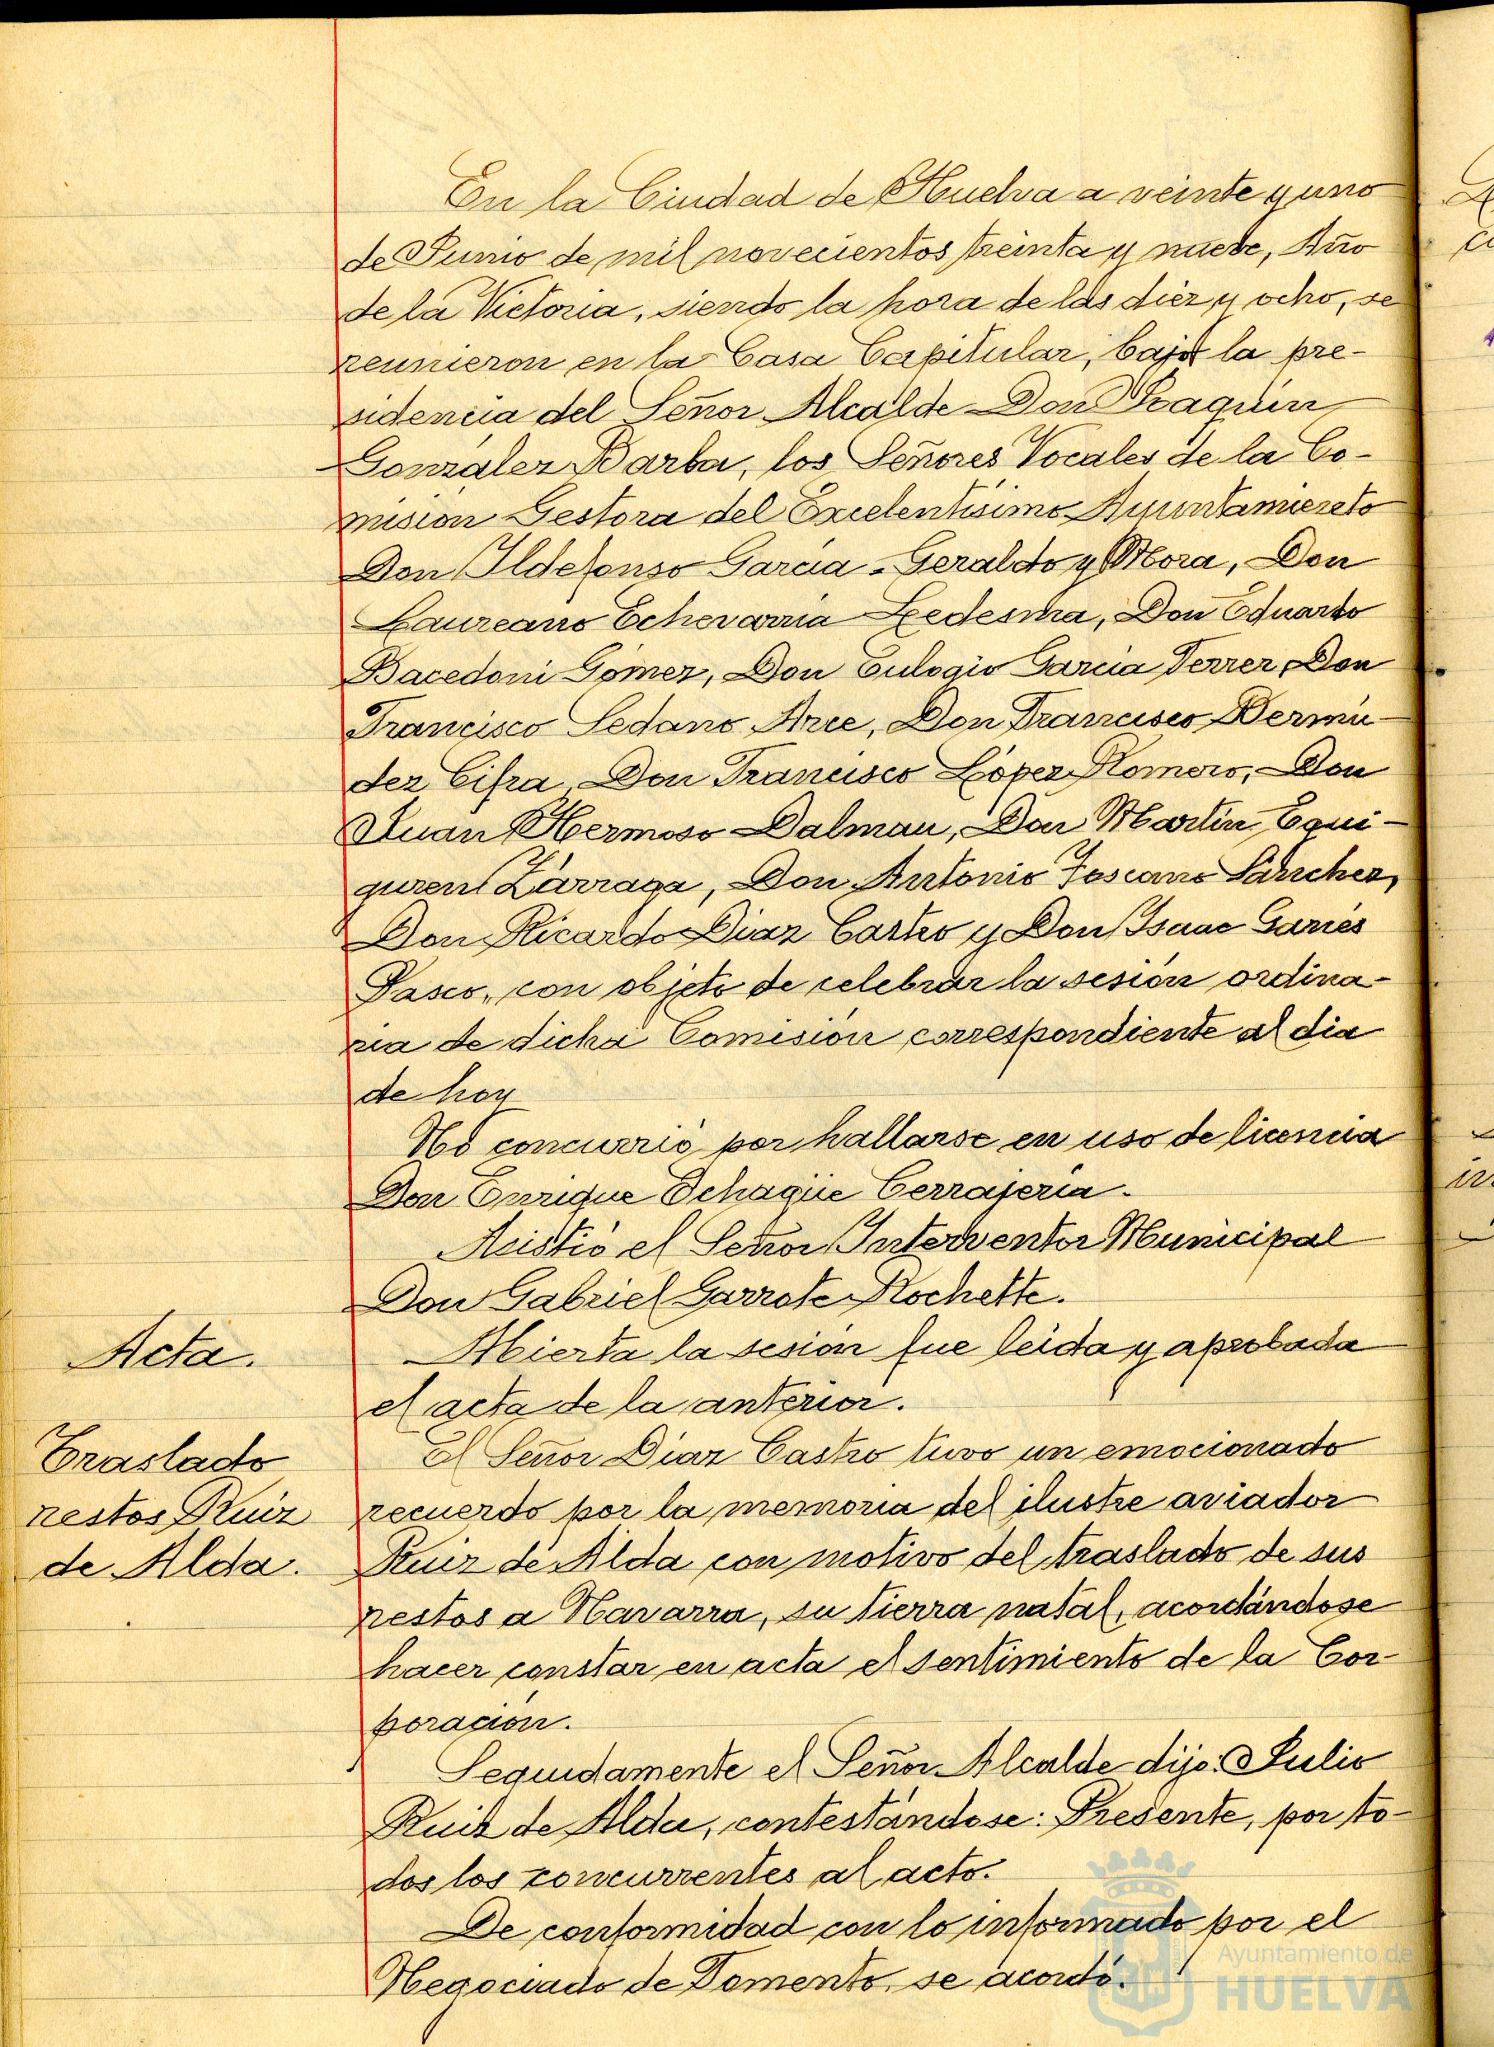 En la Ciudad de Huelva a veinte y uno
de Junio de mil novecientos treinta y nueve, Año
de la Victoria, siendo la hora de las diez y ocho, se
reunieron en la Casa Capitular, bajo la pre-
sidencia del Señor Alcalde Don Joaquín
González Barba, los Señores Vocales de la Co-
misión Gestora del Excelentísimo Ayuntamiento
Don Ildefonso García-Geraldo y Mora, Don
Laureano Echevarria Ledesma, Don Eduardo
Bacedoni Gómez, Don Eulogio García Ferrer, Don
Francisco Sedano Arce, Don Francisco Bermú-
dez Cifra, Don Francisco López Romero, Don
Juan Hermoso Dalmau, Don Martín Egui-
guren Zárraga, Don Antonio Toscano Sánchez,
Don Ricardo Díaz Castro y Don Isaac Garcés
Pasco, con objeto de celebrar la sesión ordina-
ria de dicha Comisión correspondiente al dia
de hoy
No concurrió por hallarse en uso de licencia
Don Enrique Echagüe Cerrajería.
Asistió el Señor Interventor Municipal
Don Gabriel Garrote Rochette.
Acta.
Abierta la sesión fue leida y aprobada
el acta de la anterior.
Traslado
restos Ruiz
de Alda.
El Señor Díaz Castro tuvo un emocionado
recuerdo por la memoria del ilustre aviador
Ruiz de Alda con motivo del traslado de sus
restos a Navarra, su tierra natal, acordándose
hacer constar en acta el sentimiento de la Cor-
poración.
Seguidamente el Señor Alcalde dijo: Julio
Ruiz de Alda, contestándose: Presente, por to-
dos los concurrentes al acto.
De conformidad con lo informado por el
Negociado de Fomento, se acordó.
Ayuntamiento de
HUELVA